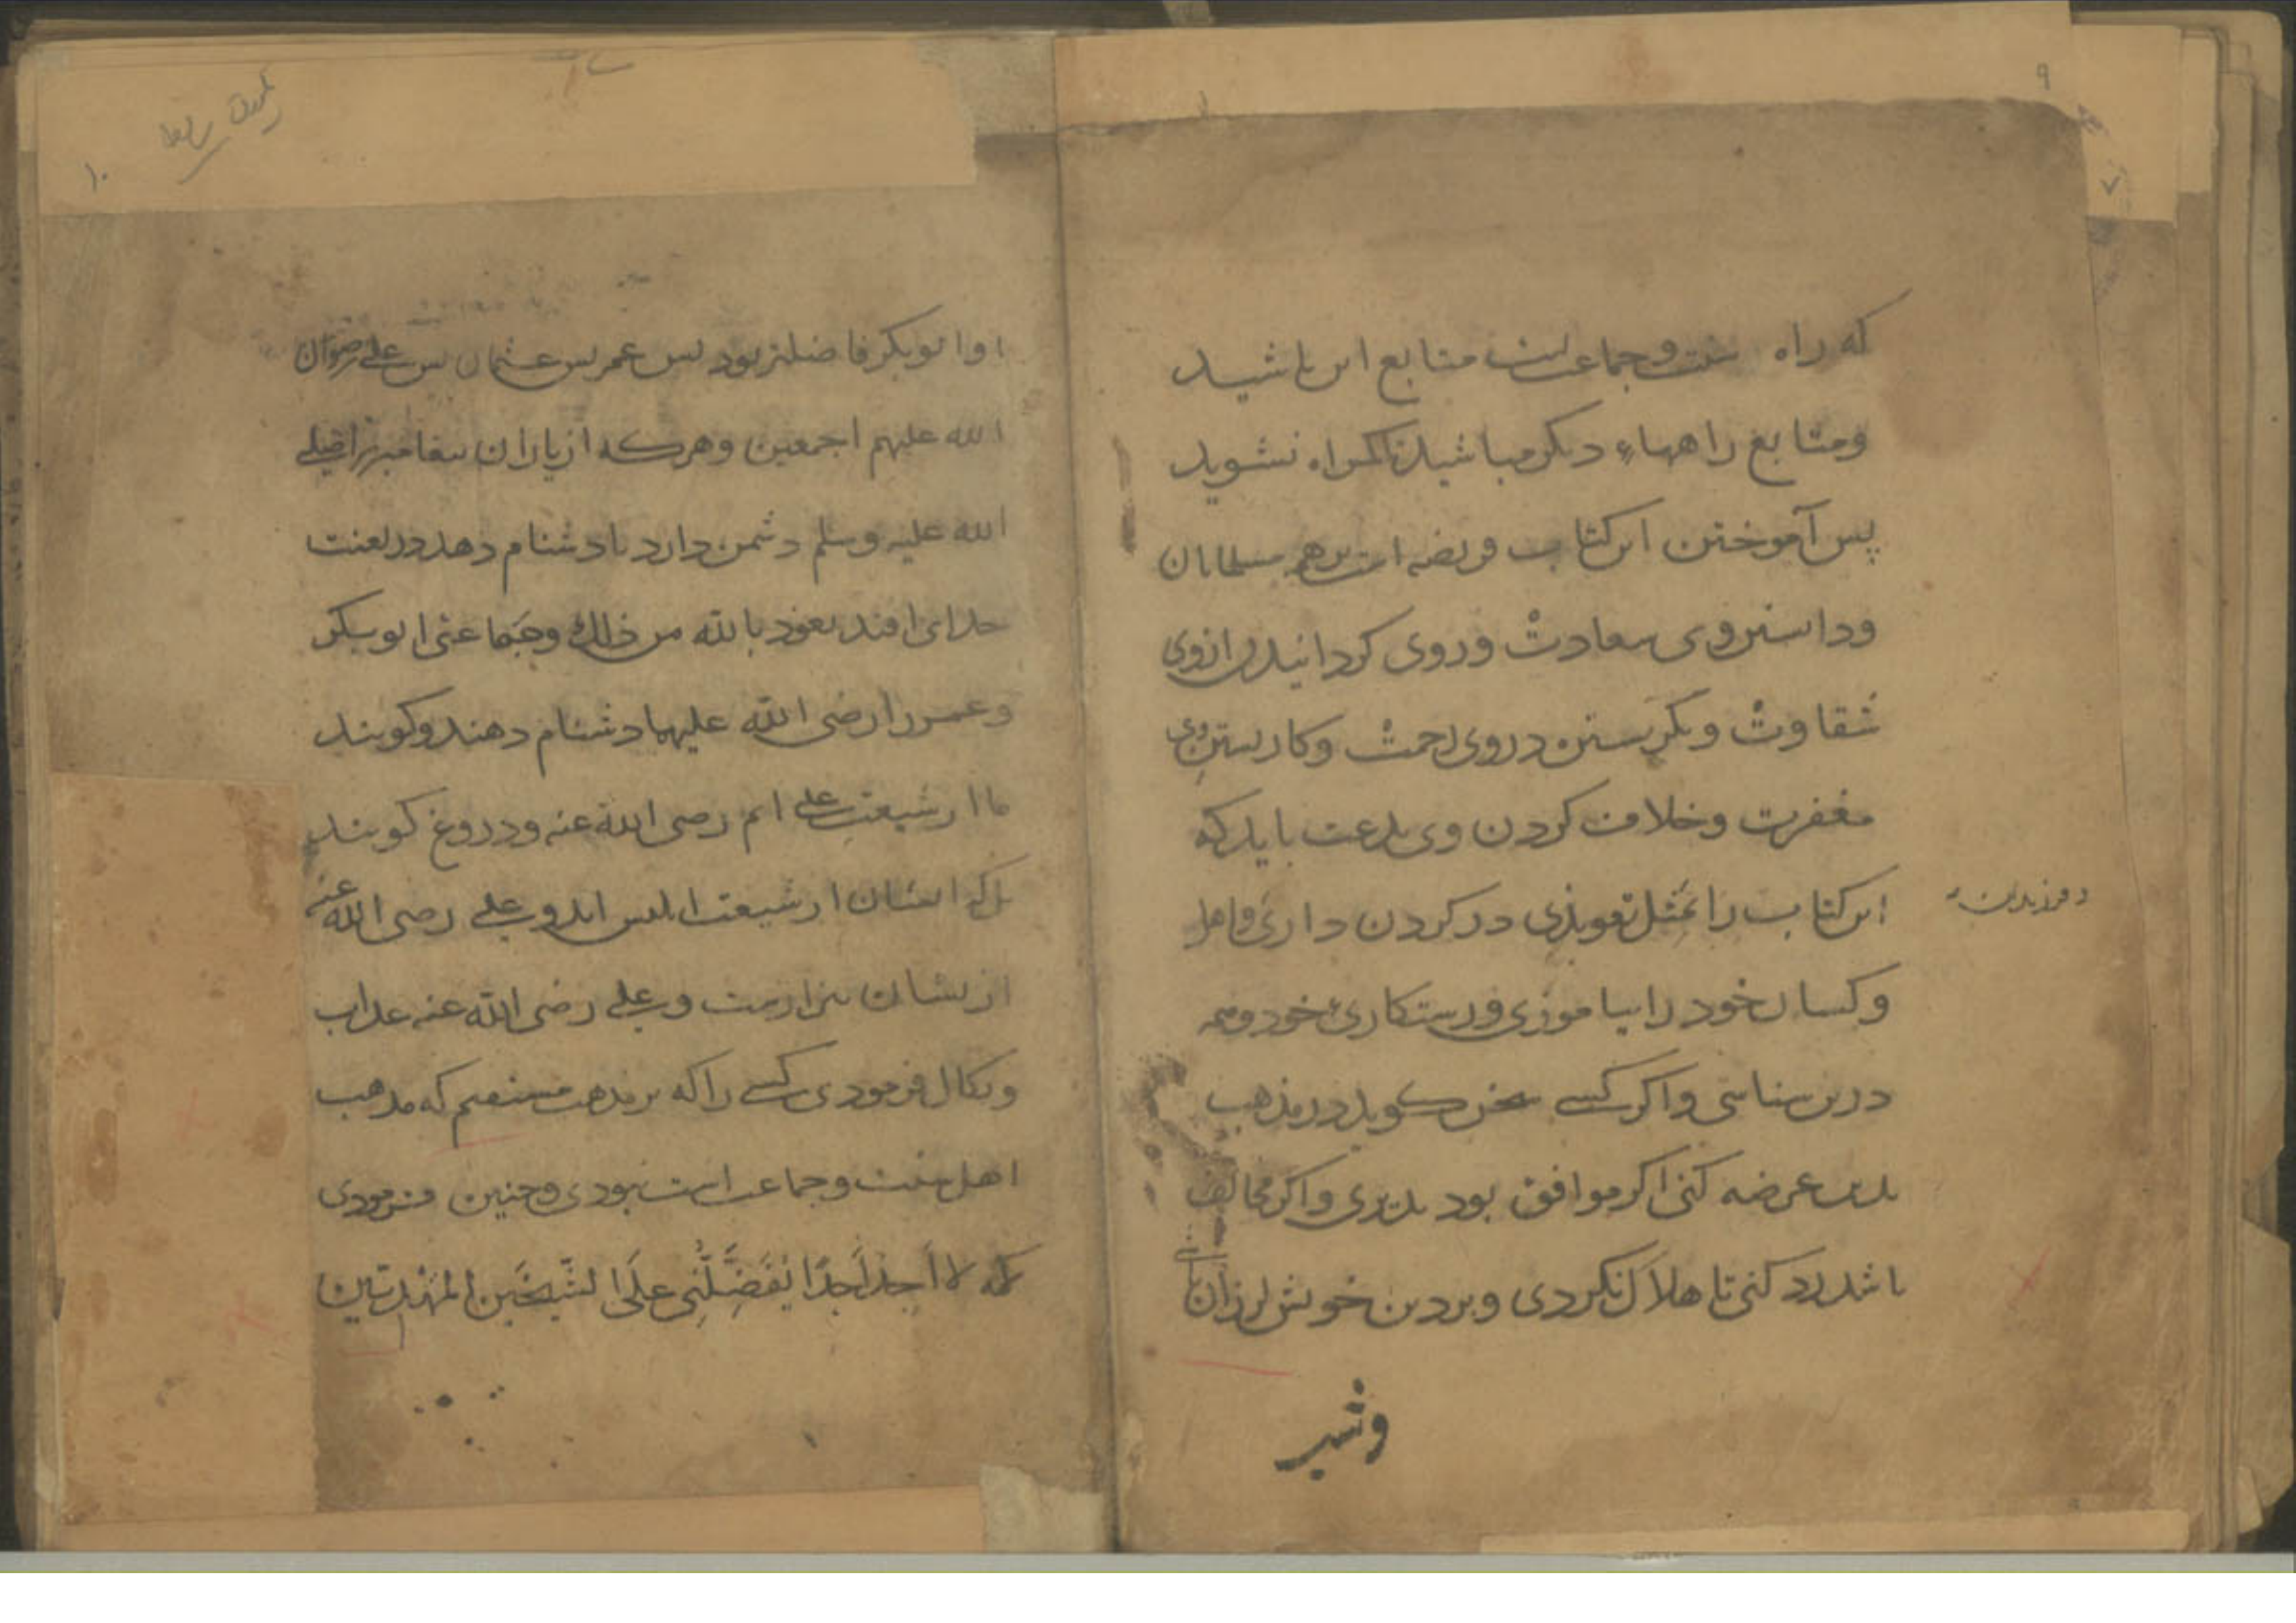 ۹
که راه سنت و جماعتست متابع این باشید
ومتابع راههاء دیکر مباشید تا کمراه نشوید
پس آموختن این کتاب فریضه است برهمه مسلمانان
ودانستن وی سعادتْ و روی کردانیدن ازوی
شقاوتْ ونکریستن در وی رحمتْ وکاربستن وی
مغفرت وخلاف کردن وی بدعت باید که
این کتاب را بمثل تعویذی در کردن داری واهل
وفرزندان
وکسان خود را بیاموزی ورستکاری خود وهمه
درین شناسی واکر کسی سخن کوید در مذهب
بدین عرضه کنی اکر موافق بود بذیری واکر مخالف
باشد رد کنی تا هلاک نکردی وبر دین خویش لرزان باشی
۱۰
ابوبکر فاضلتر بود پس عمر پس عثمان پس علی رضوان
الله علیهم اجمعین وهرکه از یاران پیغامبر را صلی
الله علیه وسلم دشمن دارد یا دشنام دهد در لعنت
خدای افتد نعوذ بالله من ذالک وجماعتی ابوبکر
وعمر را رضی الله علیهما دشنام دهند وکویند
ما از شیعت علی ایم رضی الله عنه ودروغ کویند
بل که ایشان از شیعت ابلیس اند وعلی رضی الله عنه
ازیشان بیزارست وعلی رضی الله عنه عذاب
ونکال فرمودی کسی را که بر مذهب مستقیم که مذهب
اهل سنت وجماعت است نبودی وچنین فرمودی
که لا اَجِدُ اَحَدًا یُفَضِّلُنِی عَلَی الشَّیْخَیْنِ المهدیین